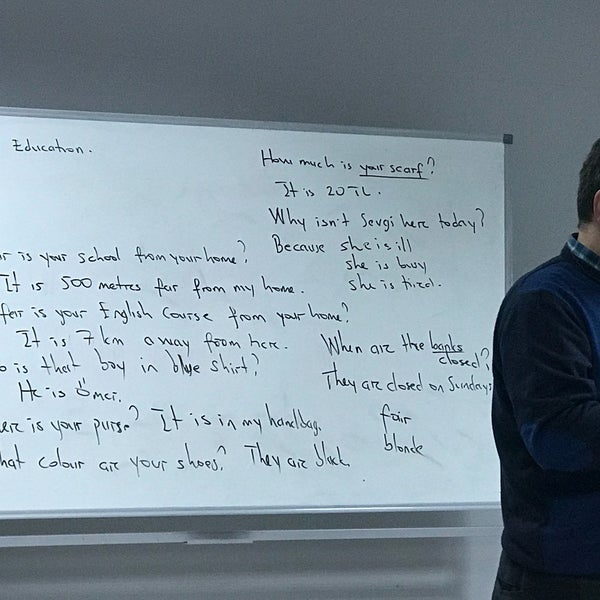 Education.
r is your school from your home?
It is 500 metres far from my home.
far is your English Course from your home?
It is 7 km away from here.
o is that boy in blue shirt?
He is Ömer.
ere is your purse? It is in my handbag.
hat colour are your shoes? They are black.
How much is your scarf?
It is 20 TL.
Why isn't Sevgi here today?
Because she is ill
she is busy
she is tired.
When are the banks
closed?
They are closed on Sundays
fair
blonde